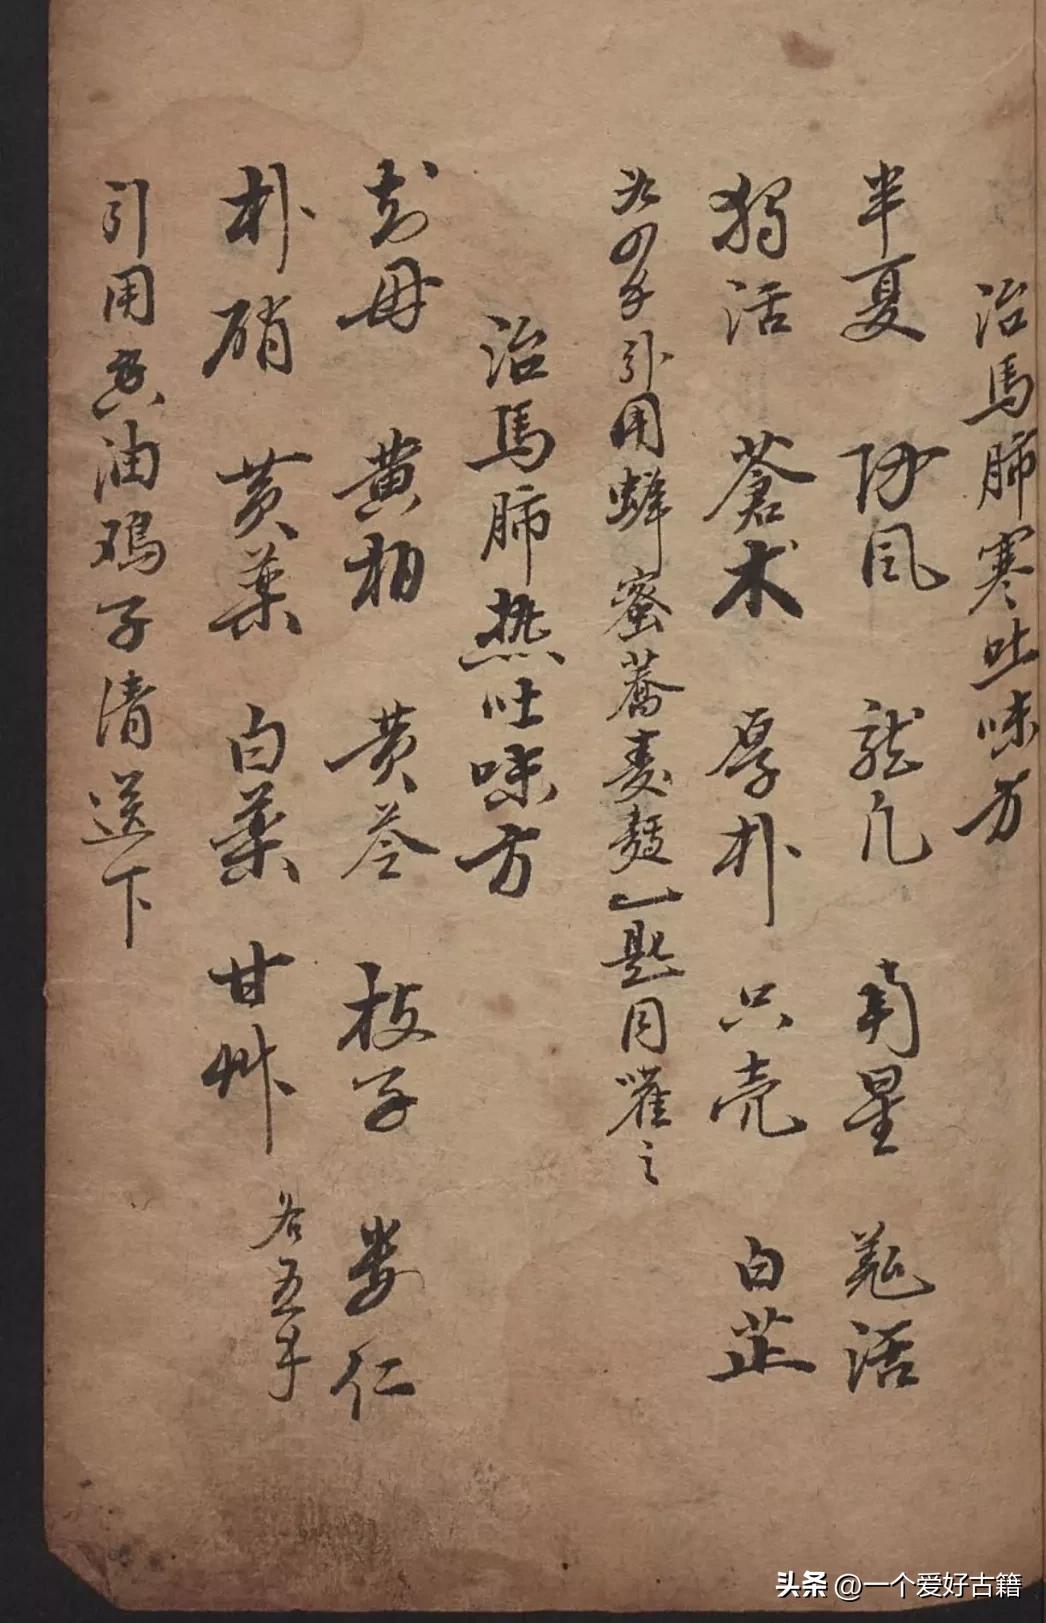 治馬肺寒吐味方
半夏 防風 龍爪 南星 羌活
獨活 蒼术 厚朴 只壳 白芷
引用蜂蜜蕎麦麵一匙同灌之
治馬肺热吐味方
知母 黄柏 黄芩 枝子 娄仁
朴硝 黄藥 白藥 甘艸 各五
引用香油鸡子清送下
头条 @一个爱好古籍